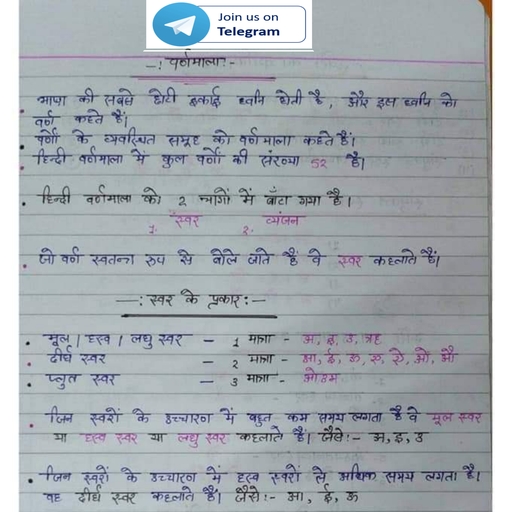 Join us on
Telegram
-: वर्णमाला:-
भाषा की सबसे छोटी इकाई ध्वनि होती है, और इस ध्वनि को
वर्ण कहते हैं।
वर्णों के व्यवस्थित समूह को वर्णमाला कहते हैं।
हिन्दी वर्णमाला में कुल वर्णों की संख्या 52 है।
हिन्दी वर्णमाला को 2 भागों में बाँटा गया है।
1. स्वर 2. व्यंजन
जो वर्ण स्वतन्त्र रूप से बोले जाते हैं वे स्वर कहलाते हैं।
—: स्वर के प्रकार:—
मूल / ह्रस्व / लघु स्वर - 1 मात्रा - अ, इ, उ, ऋ
दीर्घ स्वर - 2 मात्रा - आ, ई, ऊ, ए, ऐ, ओ, औ
प्लुत स्वर - 3 मात्रा - ओउम
जिन स्वरों के उच्चारण में बहुत कम समय लगता है वे मूल स्वर
या ह्रस्व स्वर या लघु स्वर कहलाते हैं। जैसे:- अ, इ, उ
जिन स्वरों के उच्चारण में ह्रस्व स्वरों से अधिक समय लगता है।
वह दीर्घ स्वर कहलाते हैं। जैसे:- आ, ई, ऊ